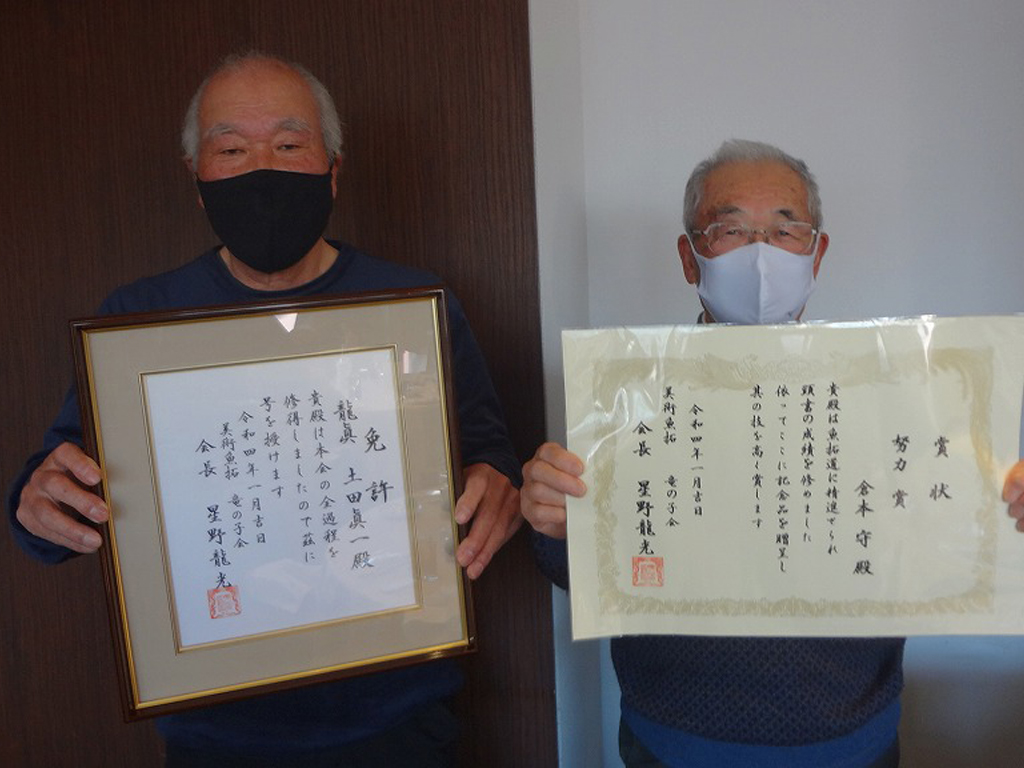 免許
龍眞 土田眞一殿
貴殿は本会の全過程を
修得しましたので茲に
号を授けます
令和四年一月吉日
美術魚拓 竜の子会
会長 星野龍光
賞状
努力賞
倉本守殿
貴殿は魚拓道に精進せられ
頭書の成績を修めました
依ってここに記念品を贈呈し
其の技を高く賞します
令和四年一月吉日
美術魚拓 竜の子会
会長 星野龍光